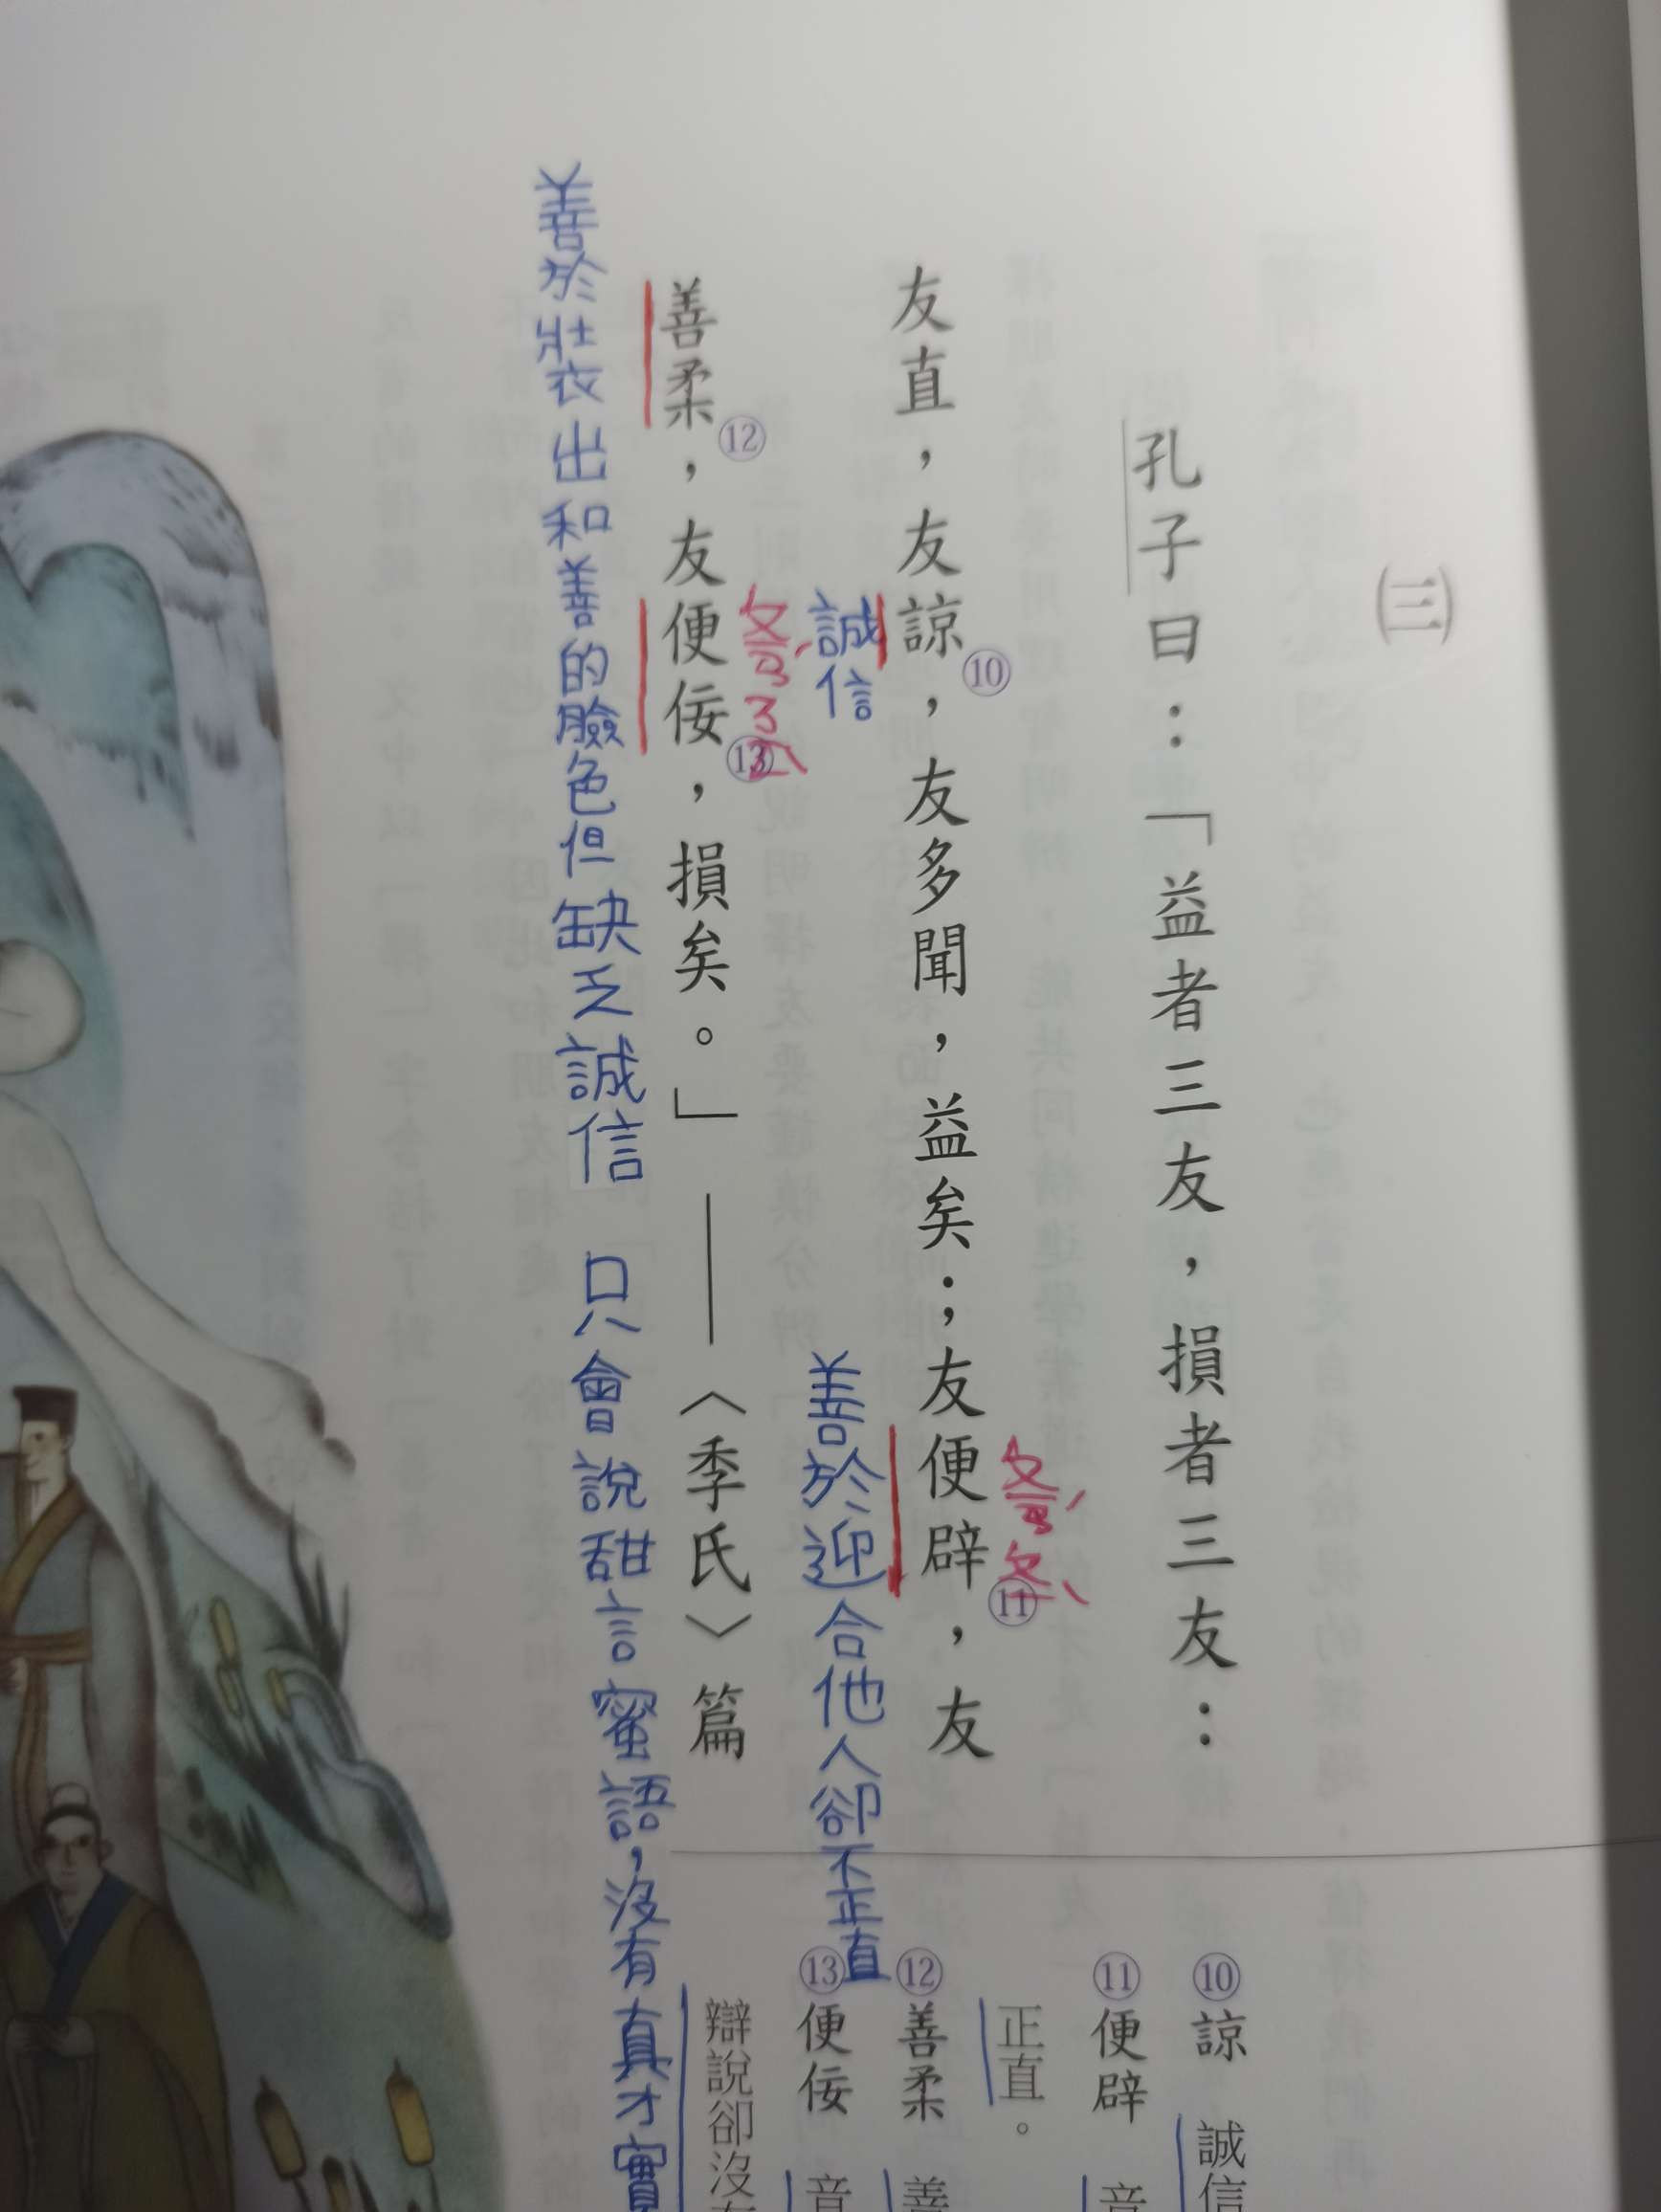 ㈢
孔子曰：「益者三友，損者三友：
友直，友諒⑩，友多聞，益矣；友便辟⑪，友
ㄆㄧㄢˊ ㄆㄧˋ
誠信
善於迎合他人卻不正直
善柔⑫，友便佞⑬，損矣。」——〈季氏〉篇
ㄆㄧㄢˊ ㄋㄧㄥˋ
善於壯衣出和善的臉色但缺乏誠信 只會說甜言蜜語，沒有真才實
⑩諒 誠信
⑪便辟 音
正直。
⑫善柔 善
⑬便佞 音
辯說卻沒有